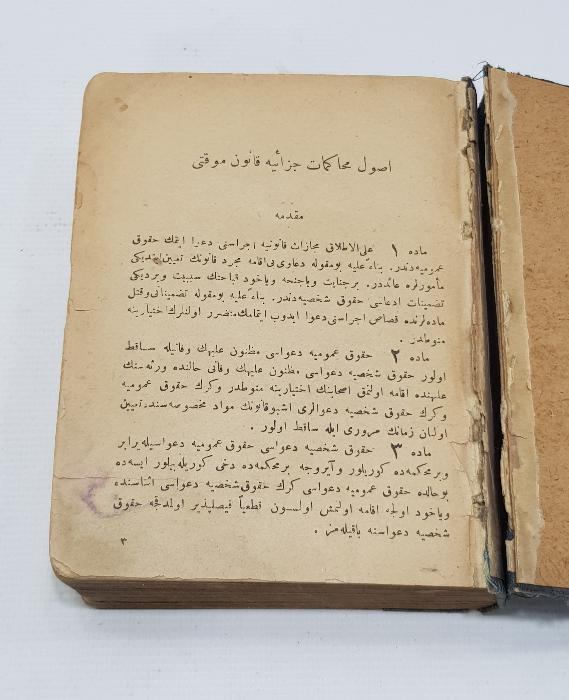 اصول محاكمات جزائيه قانون موقتى
مقدمه
ماده ١ على الاطلاق مجازات قانونيه اجراسنى دعوا ايتمك حقوق
عموميه‌دندر. بناءً عليه بومقوله دعاوى‌يى اقامه مجرد قانونك تعيين ايتديكى
مأمورلره عائددر. برجنايت وياجنحه وياخود قباحتك سببيت ويرديكى
تضمينات ادعاسى حقوق شخصيه‌دندر. بناءً عليه بومقوله تضميناتى وقتل
ماده‌لرنده قصاص اجراسنى دعوا ايدوب ايتمامك متضرر اولنلرك اختيارينه
منوطدر .
ماده ٢ حقوق عموميه دعواسى مظنون عليهك وفاتيله ساقط
اولور حقوق شخصيه دعواسى مظنون عليهك وفاتى حالنده ورثه‌سنك
عليهنده اقامه اولنمق اصحابنك اختيارينه منوطدر وكرك حقوق عموميه
وكرك حقوق شخصيه دعوالرى اشبو قانونك مواد مخصوصه‌سنده تعيين
اولنان زمانك مرورى ايله ساقط اولور .
ماده ٣ حقوق شخصيه دعواسى حقوق عموميه دعواسيله برابر
وبر محكمه‌ده كوريلور وآيروجه بر محكمه‌ده دخى كوريله‌بيلور ايسه‌ده
بوحالده حقوق عموميه دعواسى كرك حقوق شخصيه دعواسى اثناسنده
وياخود اولجه اقامه اولنمش اولسون قطعياً فيصلپذير اولمدقجه حقوق
شخصيه دعواسنه باقيله‌مز .
٣